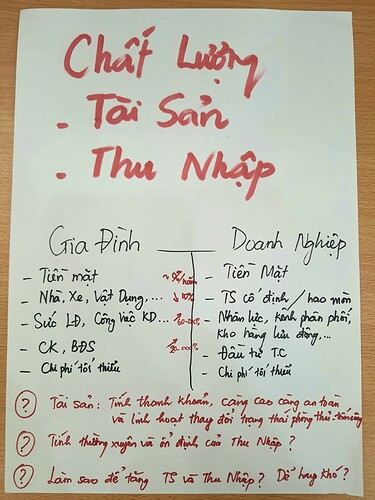 Chất Lượng
- Tài Sản
- Thu Nhập
Gia Đình
- Tiền mặt
- Nhà, Xe, Vật Dụng,... ↓ 10%
- Sức LĐ, Công việc KD...
- CK, BĐS
- Chi phí tối thiểu
Doanh Nghiệp
- Tiền Mặt
- TS cố định / hao mòn
- Nhân lực, kênh phân phối,
kho hàng lưu động,...
- Đầu tư T.C
- Chi phí tối thiểu
? Tài sản: Tính thanh khoản, càng cao càng an toàn
và linh hoạt thay đổi trạng thái phòng thủ - tấn công
? Tính thường xuyên và ổn định của Thu Nhập?
? Làm sao để tăng TS và Thu Nhập? Dễ hay Khó?